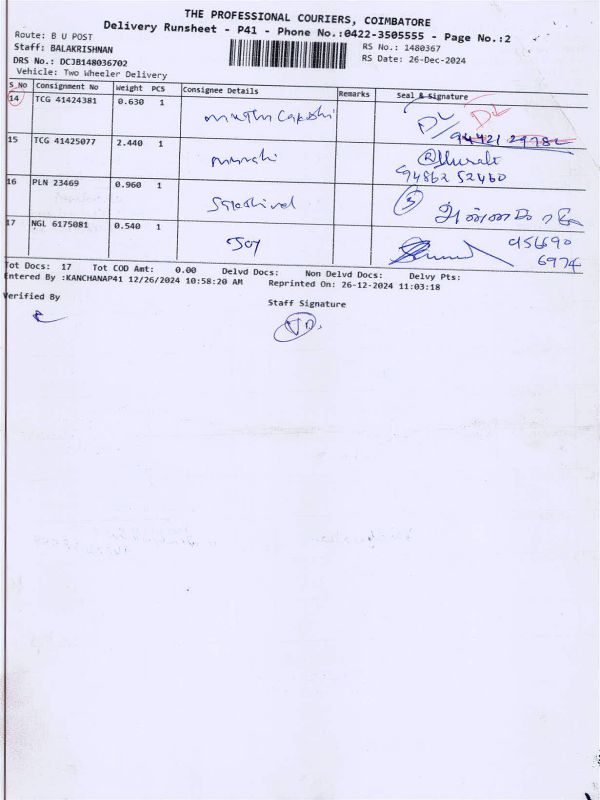 THE PROFESSIONAL COURIERS, COIMBATORE
Delivery Runsheet - P41 - Phone No.:0422-3505555 - Page No.:2
Route: B U POST
RS No.: 1480367
Staff: BALAKRISHNAN
RS Date: 26-Dec-2024
DRS No.: DCJB148036702
Vehicle: Two Wheeler Delivery
S_No Consignment No Weight PCS Consignee Details Remarks Seal & Signature
14 TCG 41424381 0.630 1 DL DL
15 TCG 41425077 2.440 1
94862 52460
16 PLN 23469 0.960 1 5
17 NGL 6175081 0.540 1 Joy 956690
6974
Tot Docs: 17 Tot COD Amt: 0.00 Delvd Docs: Non Delvd Docs: Delvy Pts:
Entered By :KANCHANAP41 12/26/2024 10:58:20 AM Reprinted On: 26-12-2024 11:03:18
Verified By
Staff Signature